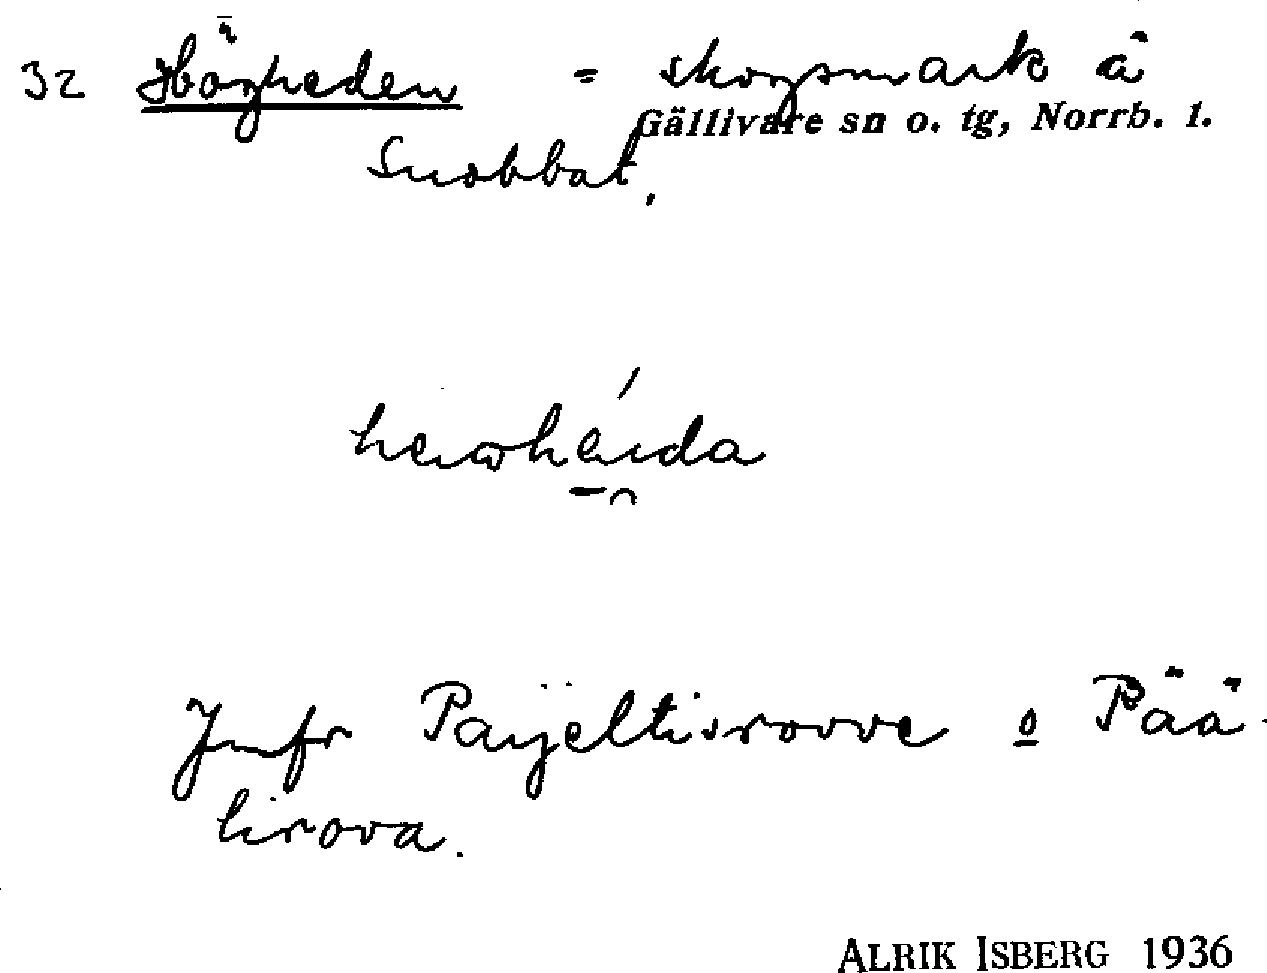 32 Högheden = skogsmark å
Gällivare sn o. tg, Norrb. l.
Snobbat.
Jmfr Paijeltisrovve o Pää-
lirova.
ALRIK ISBERG 1936